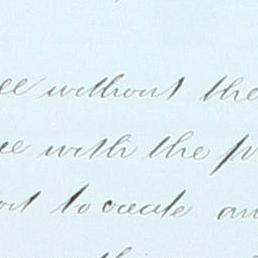 ee without the
ce with the p
ort to create an
th